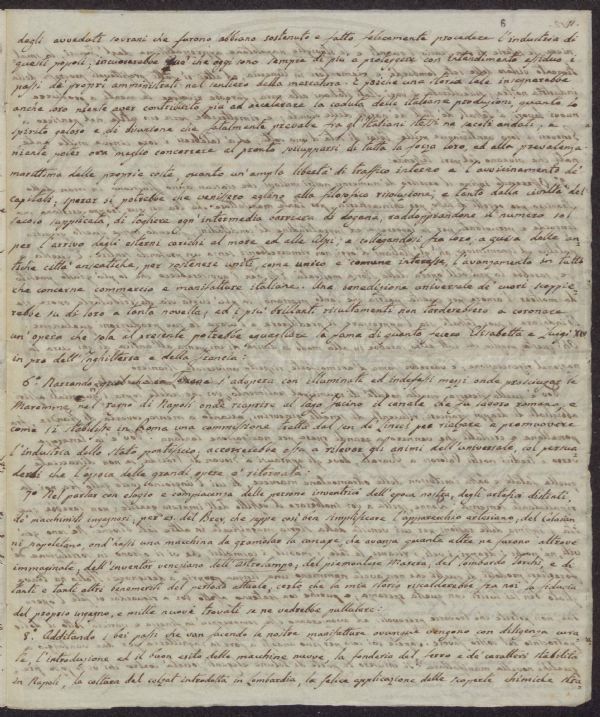 6 11.
degli avveduti sovrani che furono abbiano sostenuto e fatto felicemente procedere l'industria di
questi popoli, incuorerebbe que' che oggi sono sempre di più a proteggere con intendimento assiduo i
passi de' proprj amministrati nel sentiero della mercatura. E poichè una storia tale insegnerebbe
anche loro niente aver contribuito più ad accelerare la caduta delle italiane produzioni, quanto lo
spirito geloso e di divisione che fatalmente prevalse tra gl'Italiani stessi ne' secoli andati, e
niente poter ora meglio concorrere al pronto svilupparsi di tutta la forza loro, ed alla prevalenza
marittima delle proprie coste, quanto un'ampla libertà di traffico interno e l'avvicinamento de'
capitali, sperar si potrebbe che venissero eglino alla filosofica risoluzione, e tanto dalla civiltà del
secolo auspicata, di togliere ogn'intermedia barriera di dogana, raddoppiandone il numero sol
per l'arrivo degli esterni carichi al mare ed alle Alpi, e collegandosi fra loro, a guisa delle an
tiche città anseatiche, per sostenere uniti, come unico e comune interesse, l'avanzamento in tutto
che concerne commercio e manifatture italiane. Una benedizione universale de' cuori scoppie=
rebbe su di loro a tanta novella, ed i più brillanti risultamenti non tarderebbero a coronare
un'opera che sola al presente potrebbe eguagliare la fama di quanto fecero Elisabetta e Luigi XIV
in pro dell'Inghilterra e della Francia:
6.º Narrando s'adopera con illuminati ed indefessi mezzi onde prosciugar le
Maremme, nel regno di Napoli onde riaprire al lago Fucino il canale che fu lavoro romano, e
come si stabilisse in Roma una commissione tratta dal sen de' Lincei per rialzare e promuovere
l'industria dello Stato pontificio, accorrerebbe essa a rilevar gli animi dell'universale, col persua
derli che l'epoca delle grandi opere è ritornata:
7.º Nel parlar con elogio e compiacenza delle persone inventrici dell'epoca nostra, degli artefici distinti,
de' macchinisti ingegnosi, per es. del Brey che seppe così ben semplificare l'apparecchio artesiano, del Catalan
ni napolitano, ond'hassi una macchina da gramolar la canape, che avanza quante altre ne furono altrove
immaginate, dell'inventor veneziano dell'Idrociampo, del piemontese Masera, del lombardo Torchi, e di
tanti e tanti altri benemeriti del verbale attuale, certo che la mia storia riscalderebbe fra noi la fiducia
del proprio ingegno, e mille nuove trovati se ne vedrebbe pullulare:
8. Additando i bei passi che van facendo le nostre manifatture ovunque vengono con diligenza cura
te, l'introduzione ed il buon esito delle macchine nuove, la fonderia del ferro e de' caratteri stabilita
in Napoli, la coltura del colzat introdotta in Lombardia, la felice applicazione delle scoperte chimiche stra